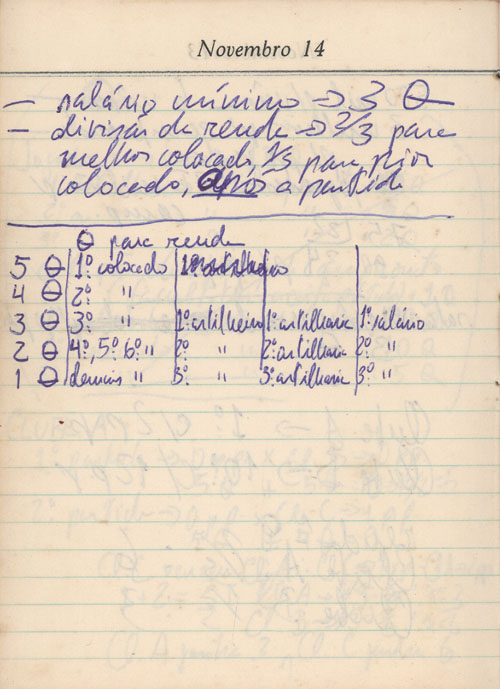 Novembro 14
— salário mínimo → 3 Ɵ
— divisão da renda → 2/3 para
melhor colocado, 1/3 para pior
colocado, após a partida
Ɵ para renda
5 Ɵ 1º colocado
4 Ɵ 2º "
3 Ɵ 3º " 1º artilheiro 1ª artilharia 1º salário
2 Ɵ 4º, 5º 6º " 2º " 2ª artilharia 2º "
1 Ɵ demais " 3º " 3ª artilharia 3º "